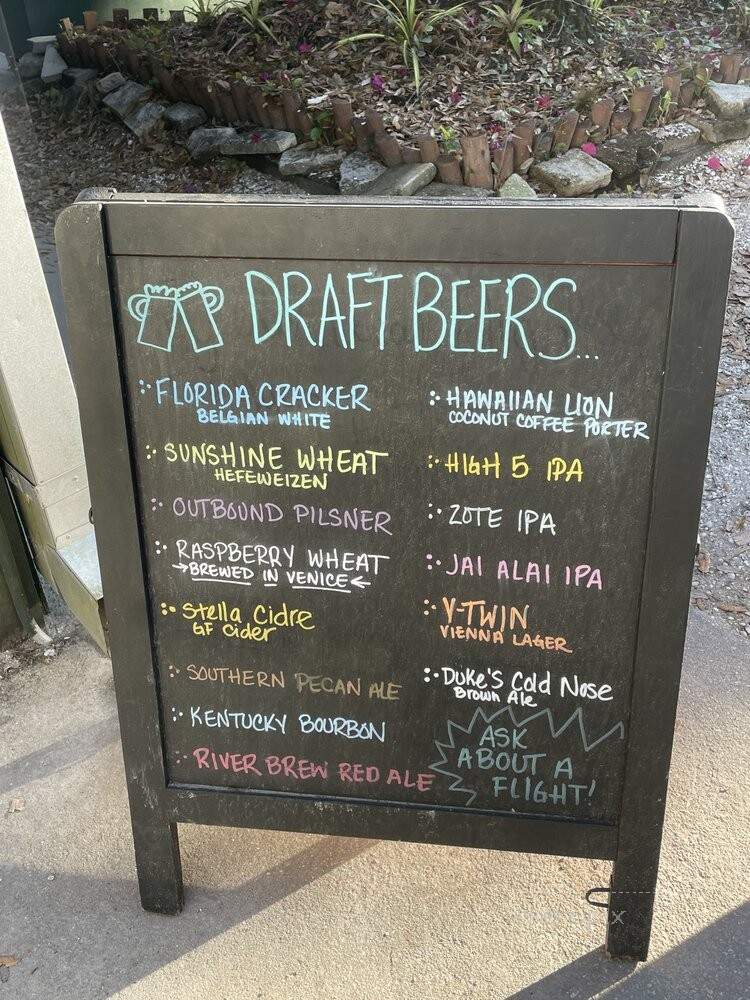 DRAFT BEERS...
FLORIDA CRACKER
BELGIAN WHITE
SUNSHINE WHEAT
HEFEWEIZEN
OUTBOUND PILSNER
RASPBERRY WHEAT
→BREWED IN VENICE←
Stella Cidre
GF Cider
SOUTHERN PECAN ALE
KENTUCKY BOURBON
RIVER BREW RED ALE
HAWAIIAN LION
COCONUT COFFEE PORTER
HIGH 5 IPA
ZOTE IPA
JAI ALAI IPA
V-TWIN
VIENNA LAGER
DUKE'S Cold Nose
Brown Ale
ASK
ABOUT A
FLIGHT!